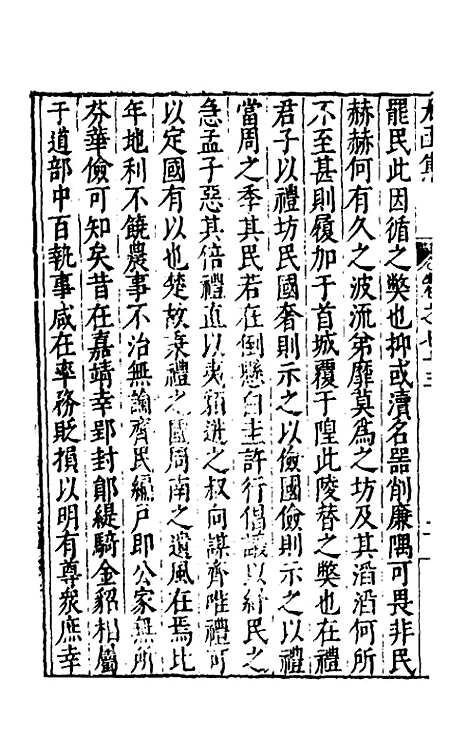 太函集 卷之七十三
罷民此因循之獘也抑或瀆名器削廉隅可畏非民
赫赫何有久之波流弟靡莫爲之坊及其滔滔何所
不至甚則履加于首城覆于隍此陵替之獘也在禮
君子以禮坊民國奢則示之以儉國儉則示之以禮
當周之季其民若在倒懸自主許行倡議以紓民之
急孟子惡其倍禮直以夷貊進之叔向謀齊唯禮可
以定國有以也楚故秉禮之國周南之遺風在焉比
年地利不饒農事不治無論齊民編戶即公家無所
芬華儉可知矣昔在嘉靖幸郢封郎緹騎金貂相屬
于道部中百執事咸在率務貶損以明有尊衆庶幸